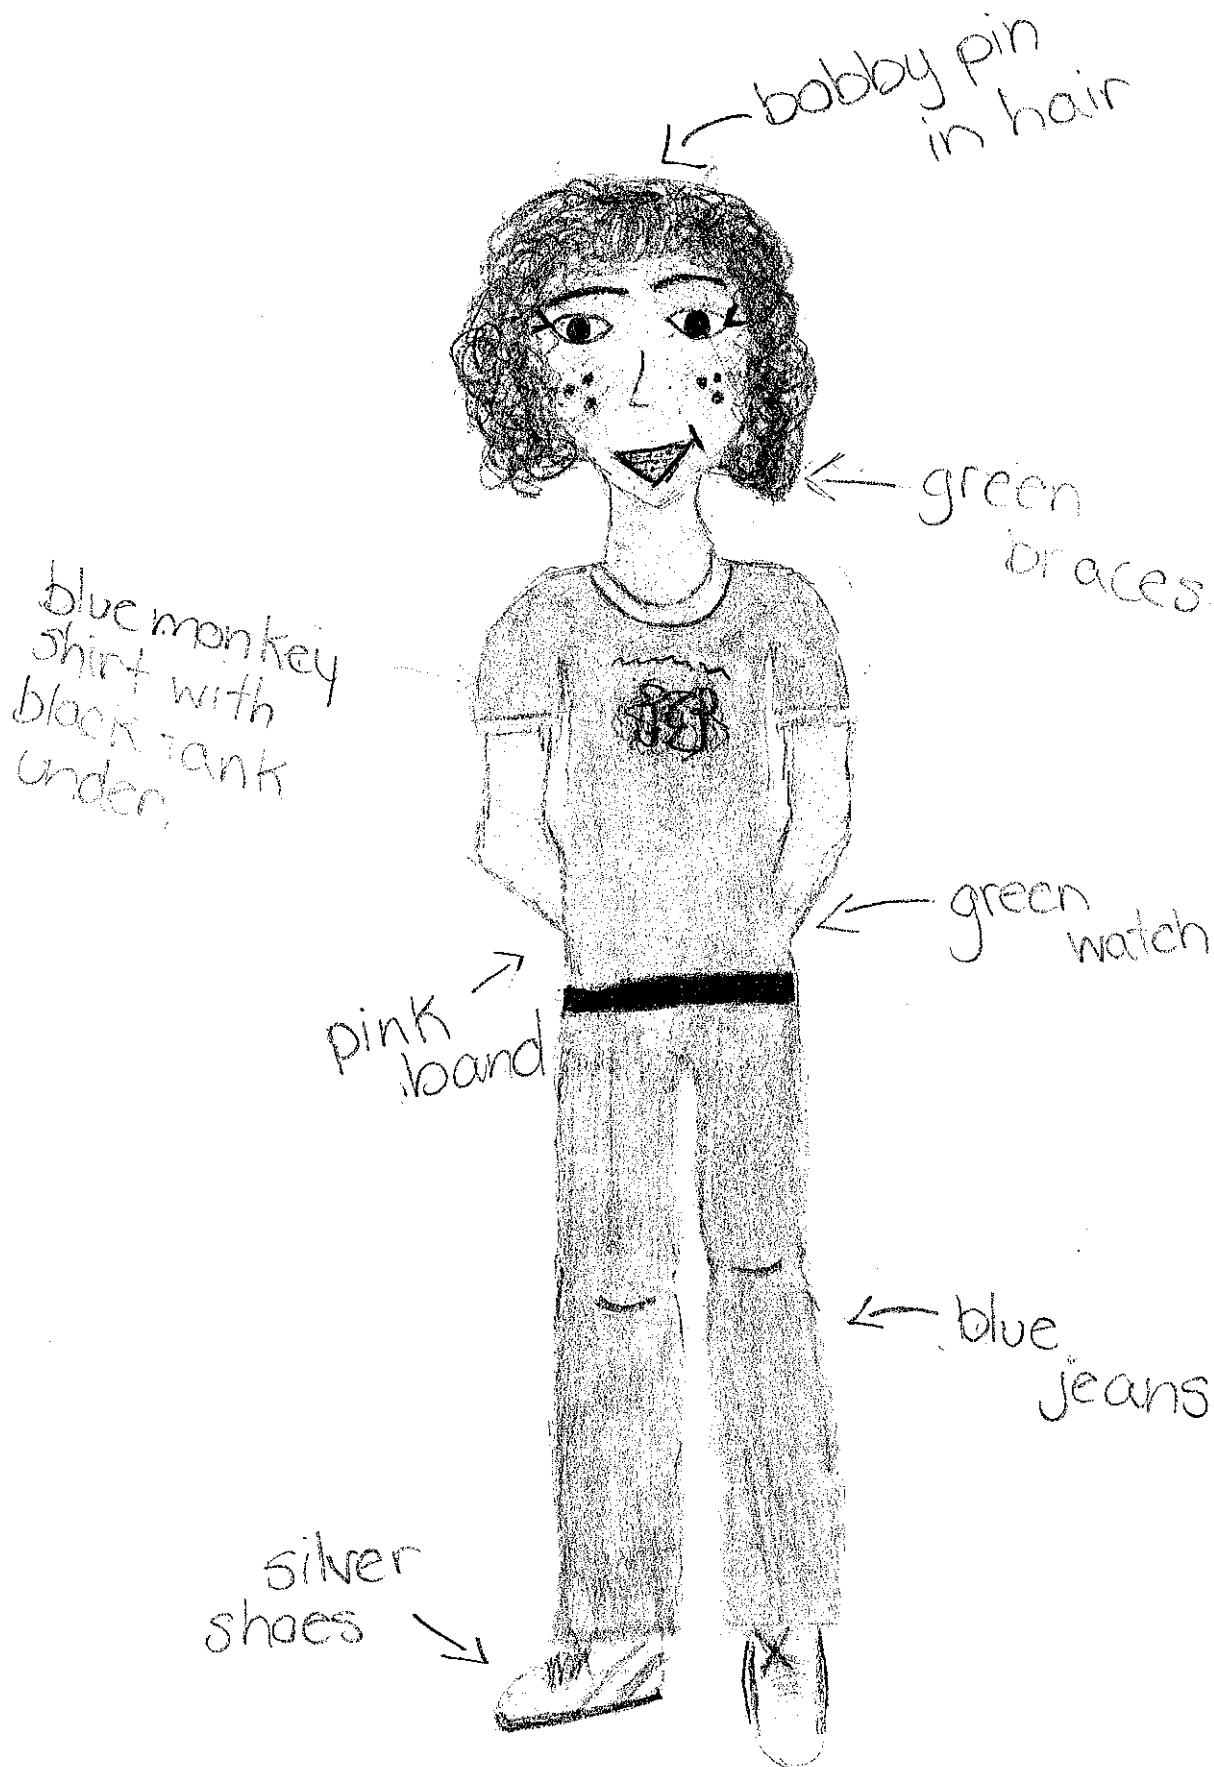 bobby pin
in hair
green
braces
blue monkey
shirt with
black tank
under.
green
watch
pink
band
blue
jeans
silver
shoes